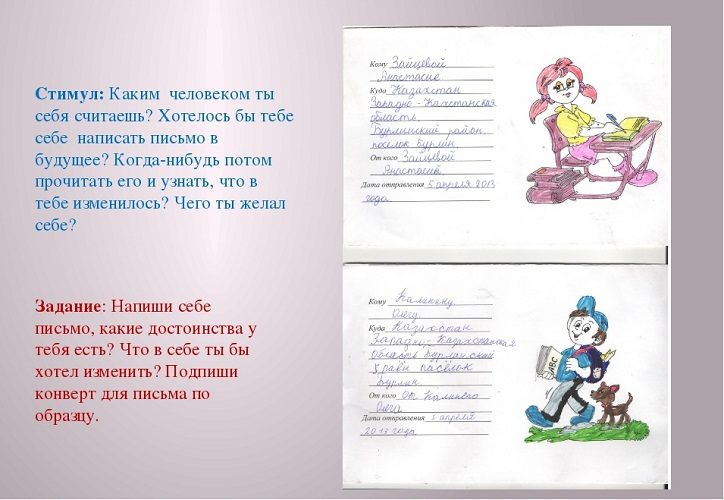 Стимул: Каким человеком ты
себя считаешь? Хотелось бы тебе
себе написать письмо в
будущее? Когда-нибудь потом
прочитать его и узнать, что в
тебе изменилось? Чего ты желал
себе?
Задание: Напиши себе
письмо, какие достоинства у
тебя есть? Что в себе ты бы
хотел изменить? Подпиши
конверт для письма по
образцу.
Кому Зайцевой
Анастасие
Куда Казахстан
Западно-Кахстанская
область.
Бурлинский район
посёлок Бурлин.
От кого Зайцевой
Анастасии
Дата отправления 5 апреля 2013
года
Кому Калинину
Олегу.
Куда Казахстан
Западно-
Область Бурлинский
посёлок
Бурлин.
От кого От Калинего
Олега
Дата отправления 5 апреля
2013 года
ABC